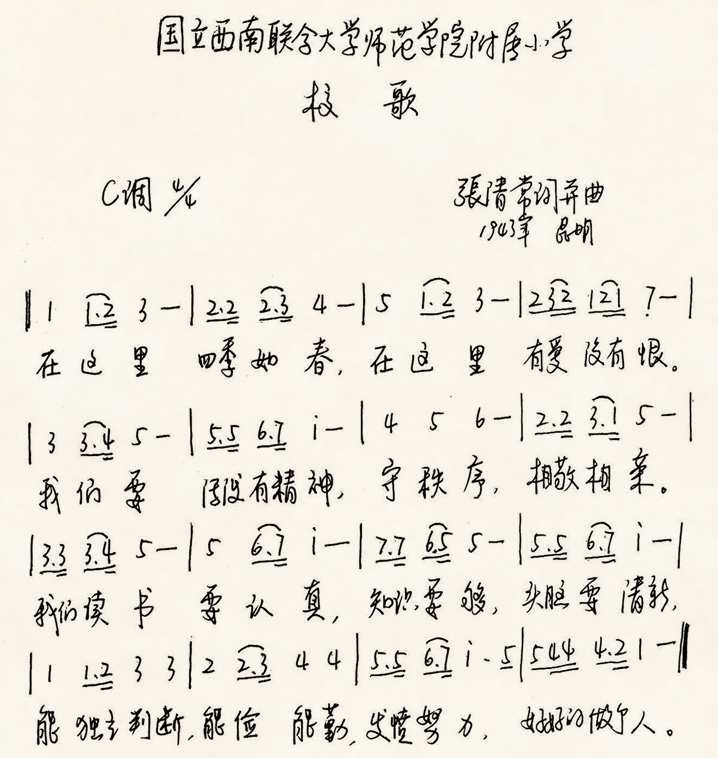 国立西南联合大学师范学院附属小学
校 歌
C调 4/4
張清常词并曲
1943年 昆明
‖ 1 1.2 3 — | 2.2 2.3 4 — | 5 1.2 3 — | 232 121 7 — |
在 这 里 四季如 春, 在 这 里 有爱没有恨。
| 3 3.4 5 — | 5.5 6.7 i — | 4 5 6 — | 2.2 3.1 5 — |
我 们 要 有精神, 守 秩 序, 相敬相亲。
| 3.3 3.4 5 — | 5 6.7 i — | 7.7 6.5 5 — | 5.5 6.7 i — |
我们读 书 要 认 真, 知识要 够, 头脑要 清新,
| 1 1.2 3 3 | 2 2.3 4 4 | 5.5 6.7 i . 5 | 544 4.2 1 — ‖
能 独立判断, 能 俭 能勤, 发愤努 力, 好好的做个人。